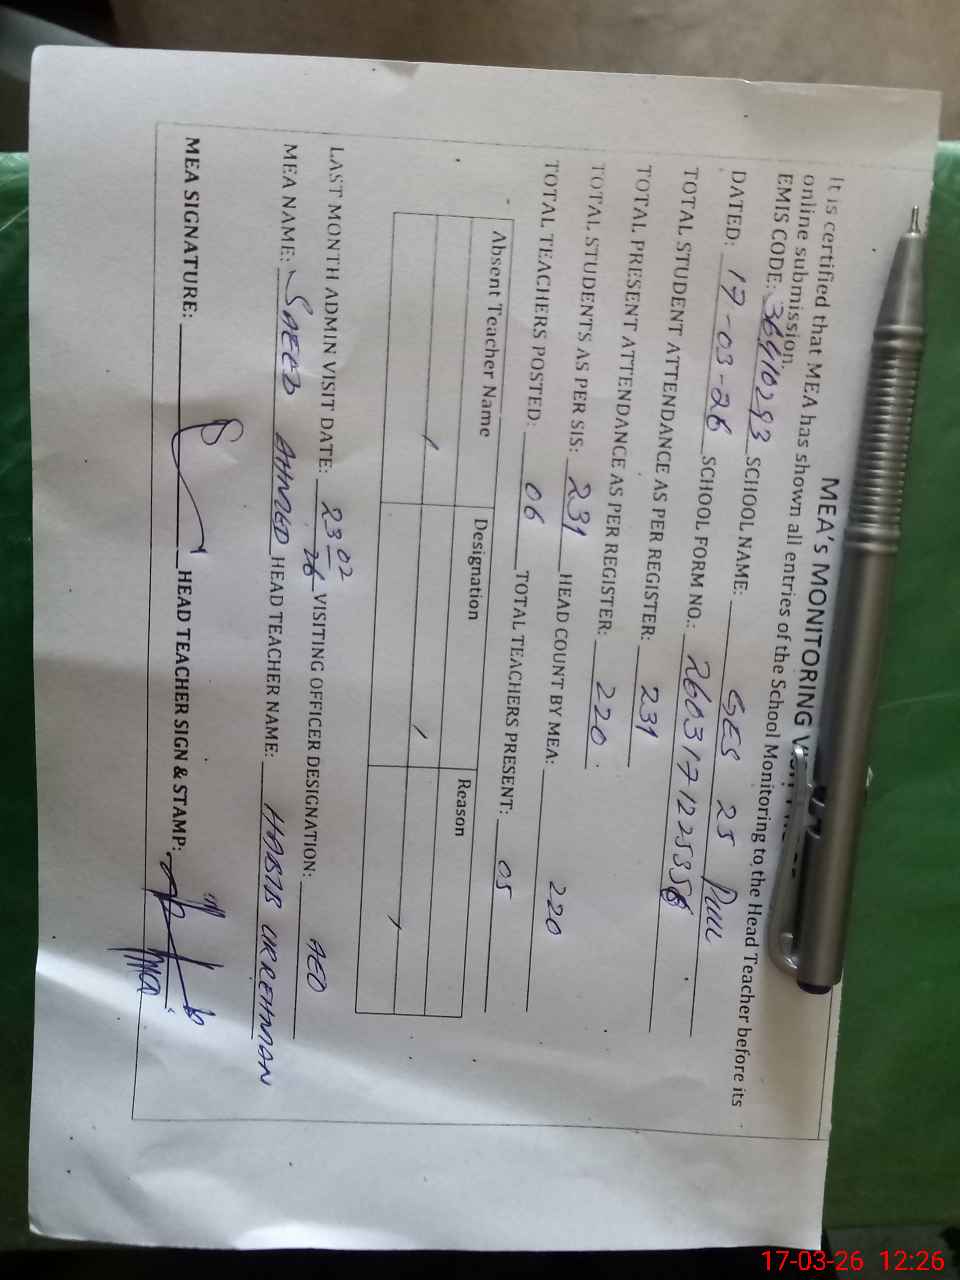 MEA's MONITORING
It is certified that MEA has shown all entries of the School Monitoring to the Head Teacher before its
online submission.
EMIS CODE: 36410293 SCHOOL NAME: GES 25 Pull
DATED: 17-03-26 SCHOOL FORM NO.: 2603171225356
TOTAL STUDENT ATTENDANCE AS PER REGISTER: 231
TOTAL PRESENT ATTENDANCE AS PER REGISTER: 220
TOTAL STUDENTS AS PER SIS: 231 HEAD COUNT BY MEA: 220
TOTAL TEACHERS POSTED: 06 TOTAL TEACHERS PRESENT: 05
Absent Teacher Name Designation Reason
LAST MONTH ADMIN VISIT DATE: 23-02-26 VISITING OFFICER DESIGNATION: AEO
MEA NAME: SAEED AHMED HEAD TEACHER NAME: HABIB URREHMAN
MEA SIGNATURE: HEAD TEACHER SIGN & STAMP:
17-03-26 12:26